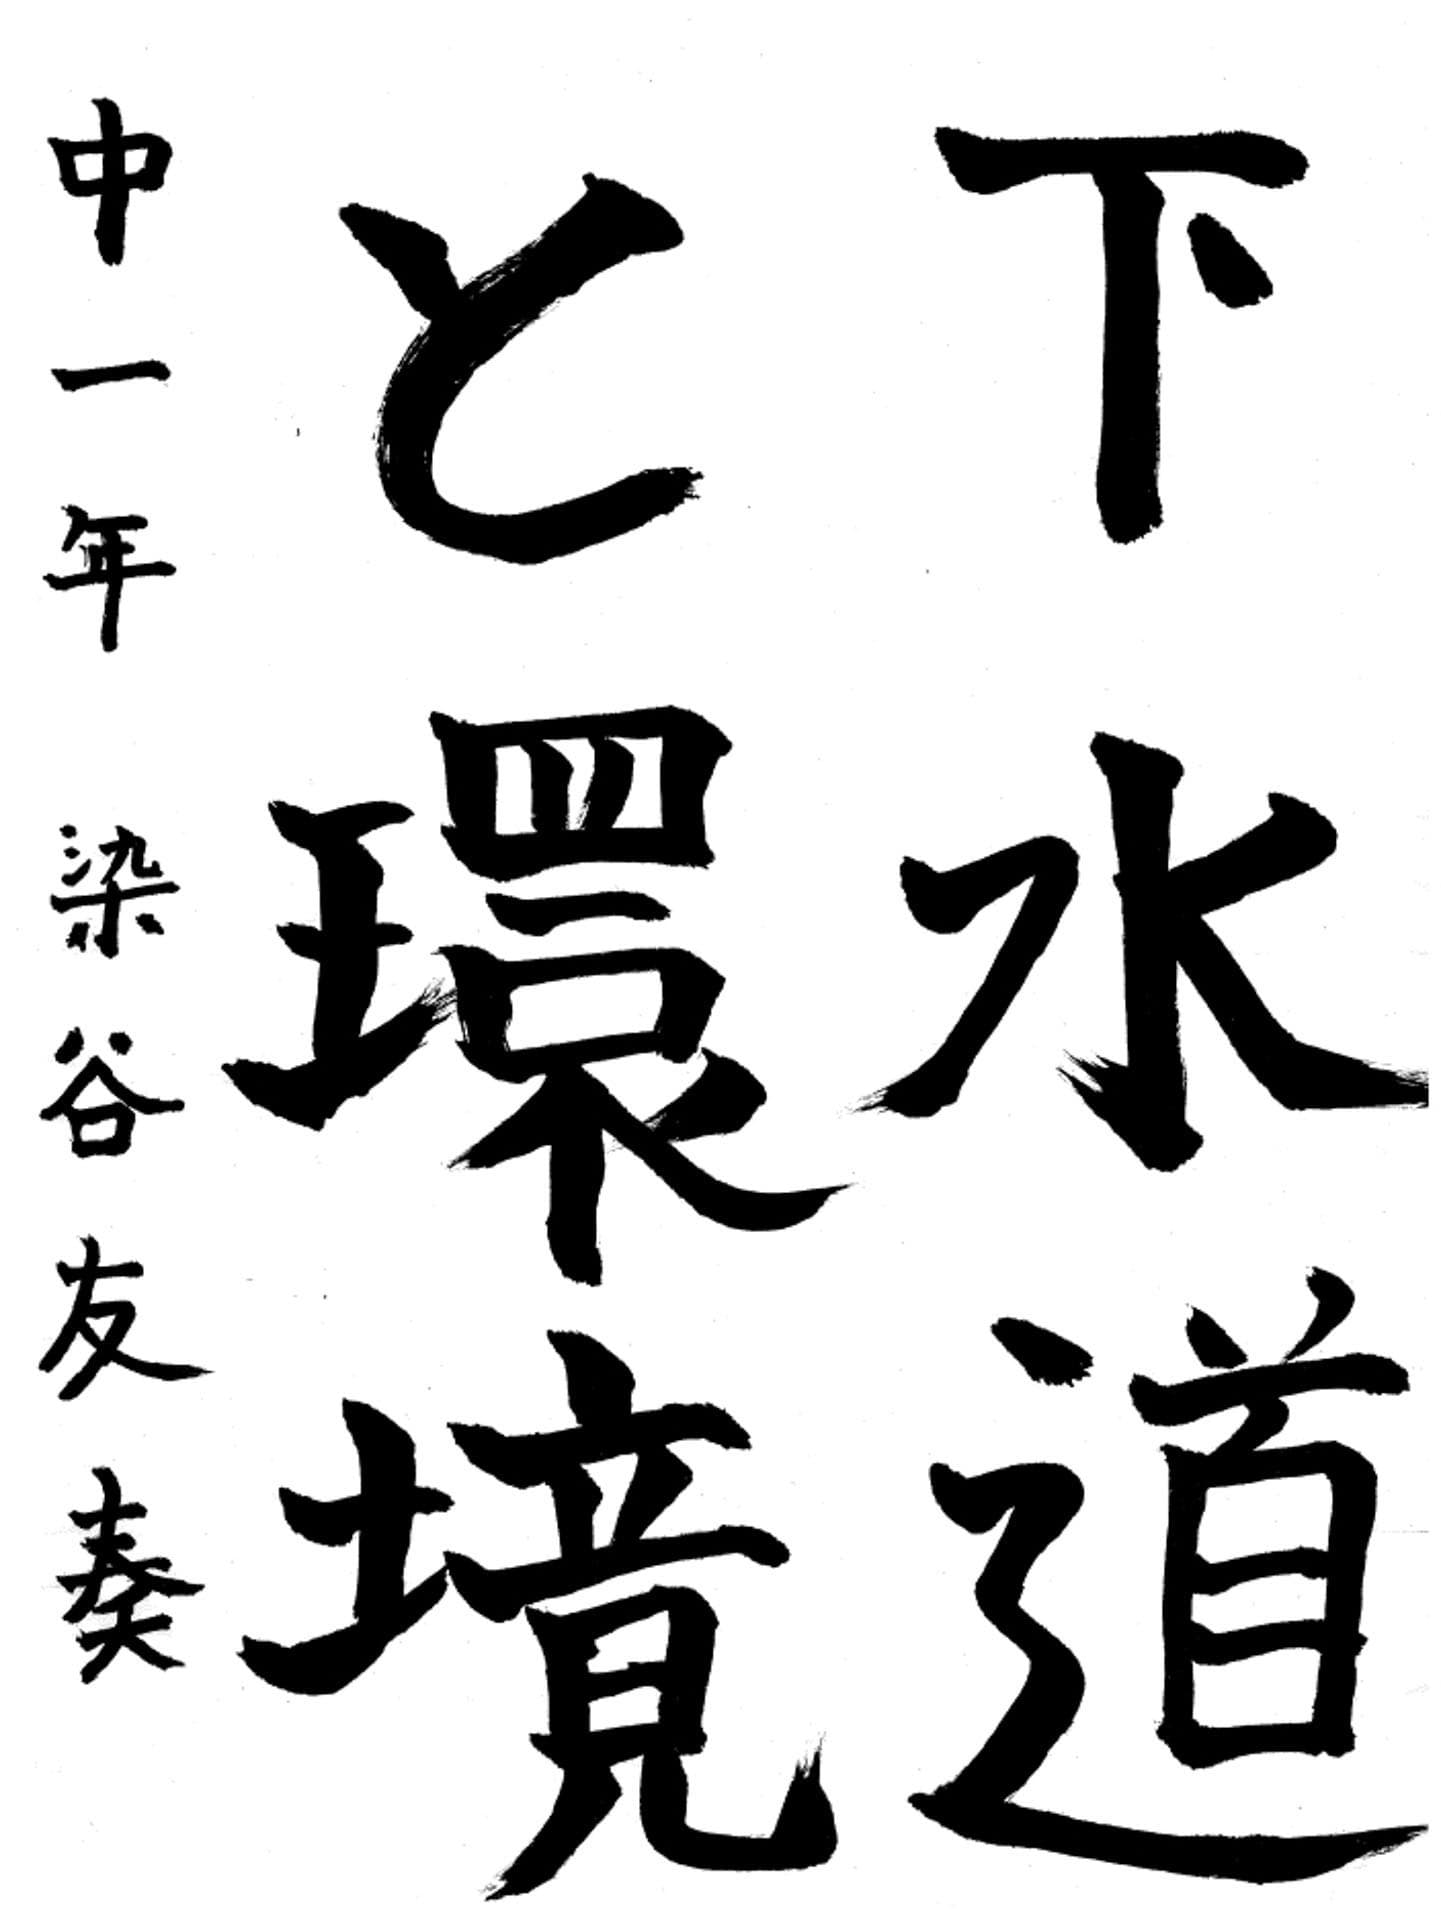 下水道
と環境
中一年 染谷友葵